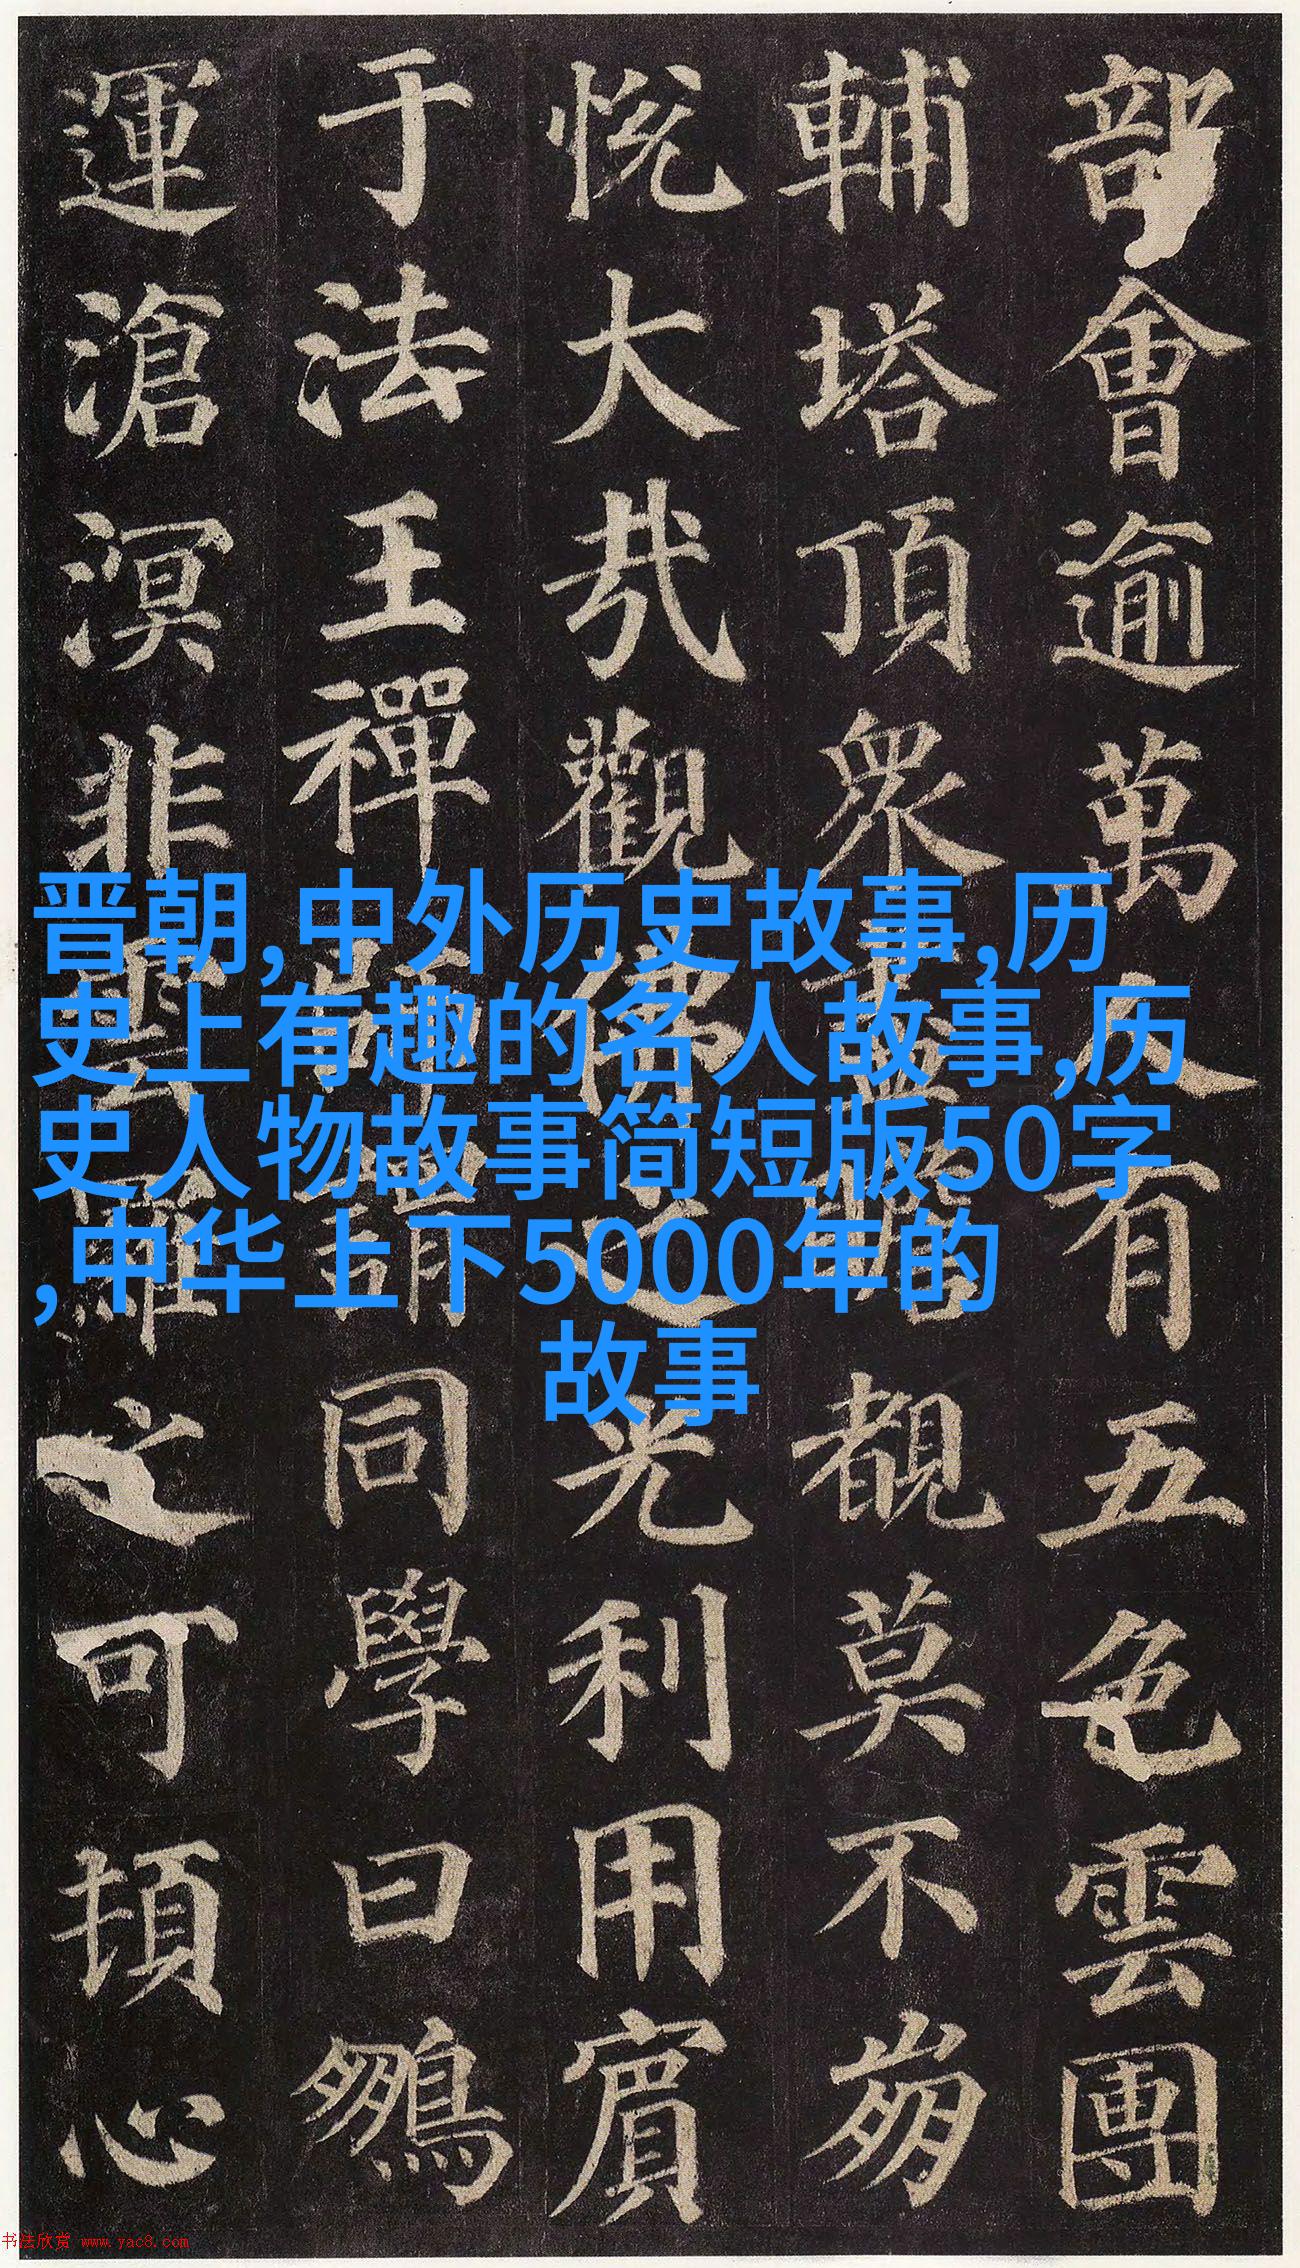 部會逾萬人有五色雲團
輔塔頂眾盡瞻覩莫不崩
悅大哉觀佛之光利用賓
于法王禪師謂同學曰鵽
運滄溟非雲羅之可頓心
晋朝,中外历史故事,历
史上有趣的名人故事,历
史人物故事简短版50字
,中华上下5000年的
故事
书法欣赏 www.yac8.com